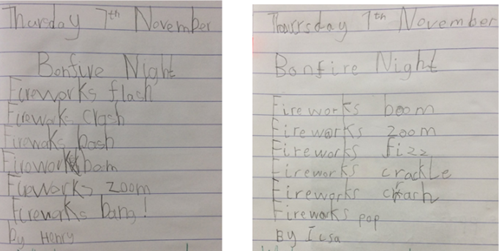 Thursday 7th November
Bonfire Night
Fireworks flash
Fireworks crash
Firewoks bosh
Fireworks bom
Fireworks zoom
Fireworks bang!
by Henry
Thursday 7th November
Bonfire Night
Fireworks boom
Fireworks zoom
Fireworks fizz
Fireworks crackle
Fireworks crash
Fireworks pop
By